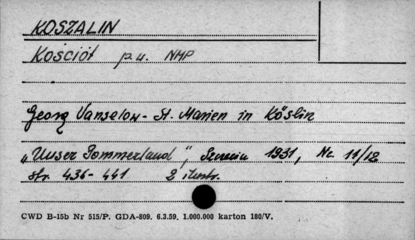 KOSZALIN
Kościół p.w. NMP
Georg Vanselow - St. Marien in Köslin
„Unser Pommerland", Szczecin 1931, Nr. 11/12
str. 436-441 2 ilustr.
CWD B-15b Nr 515/P. GDA-809. 6.3.59. 1.000.000 karton 180/V.